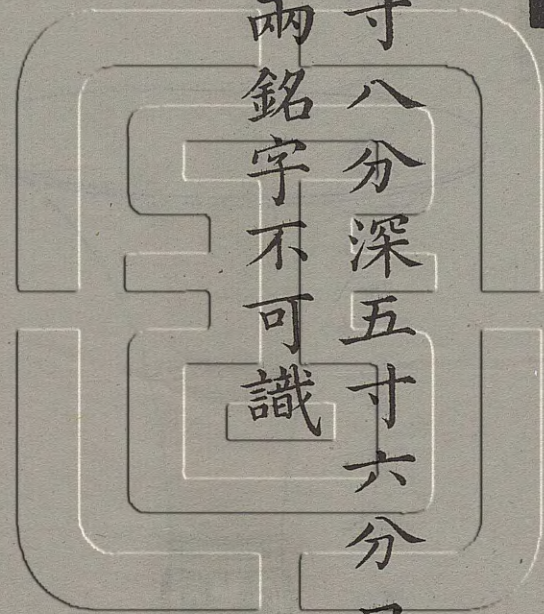 寸八分深五寸六分
兩銘字不可識